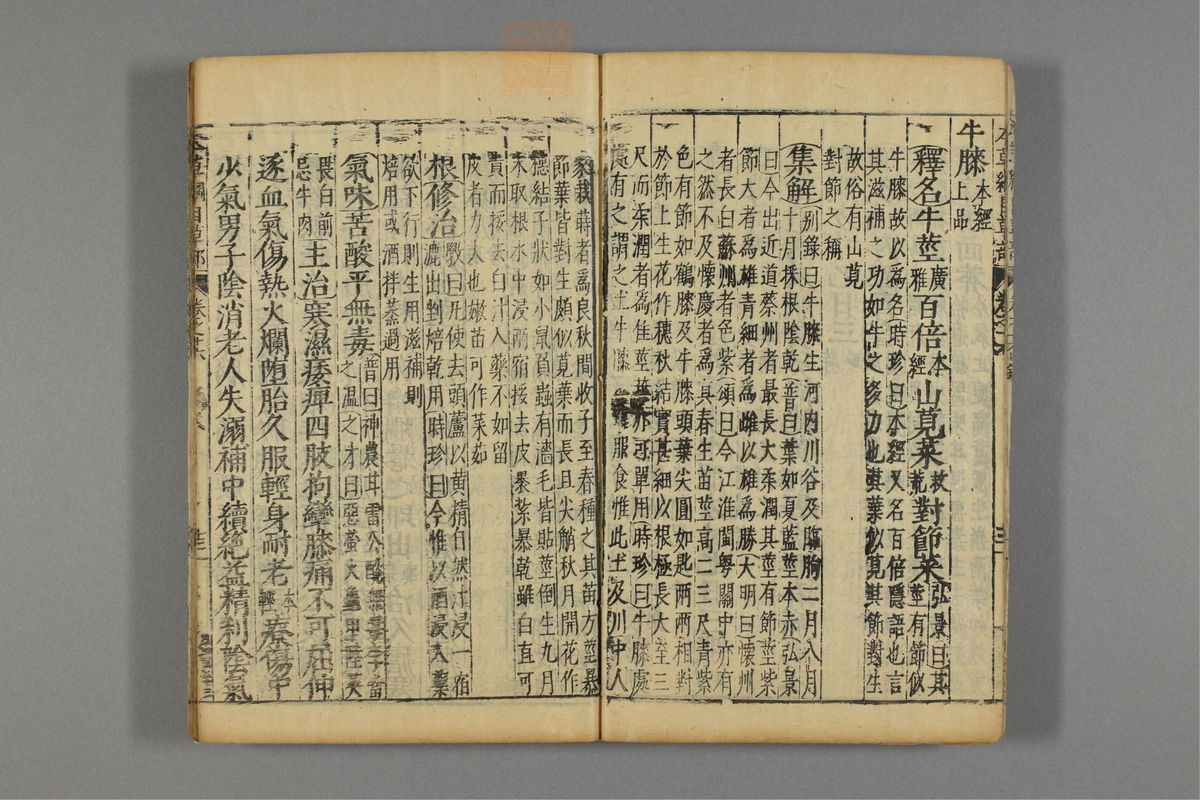 牛膝本經上品
釋名牛莖廣雅百倍本經山莧菜救荒對節菜弘景曰其莖有節似
牛膝故以爲名時珍曰本經又名百倍隱語也言
其滋補之功如牛之多力也其葉似莧其節對生
故俗有山莧
對節之稱
集解別錄曰牛膝生河内川谷及臨朐二月八月
十月采根陰乾普曰葉如夏藍莖本赤弘景
曰今出近道蔡州者最長大柔潤其莖有節莖紫
節大者爲雄青細者爲雌以雄爲勝大明曰懷州
者長白蘇州者色紫頌曰今江淮閩粤關中亦有
之然不及懷慶者爲真春生苗莖高二三尺青紫
色有節如鶴膝及牛膝頭葉尖圓如匙兩兩相對
於節上生花作穗秋結實甚細以根極長大至三
尺而柔潤者爲佳莖葉亦可單用時珍曰牛膝處
處有之謂之土牛膝服食惟此土及川中人
家栽蒔者爲良秋間收子至春種之其苗方莖暴
節葉皆對生頗似莧葉而長且尖觕秋月開花作
穗結子狀如小鼠負蟲有濇毛皆貼莖倒生九月
末取根水中浸兩宿挼去皮裹紮暴乾雖白直可
貴而挼去白汁入藥不如留
皮者力大也嫩苗可作菜茹
根修治斅曰凡使去頭蘆以黄精自然汁浸一宿
漉出剉焙乾用時珍曰今惟以酒浸入藥
欲下行則生用滋補則
焙用或酒拌蒸過用
氣味苦酸平無毒普曰神農甘雷公酸無毒李當
之溫之才曰惡螢火龜甲陸英
畏白前
忌牛肉主治寒濕痿痺四肢拘攣膝痛不可屈伸
逐血氣傷熱火爛墮胎久服輕身耐老本經療傷中
少氣男子陰消老人失溺補中續絶益精利陰氣
本草綱目草部